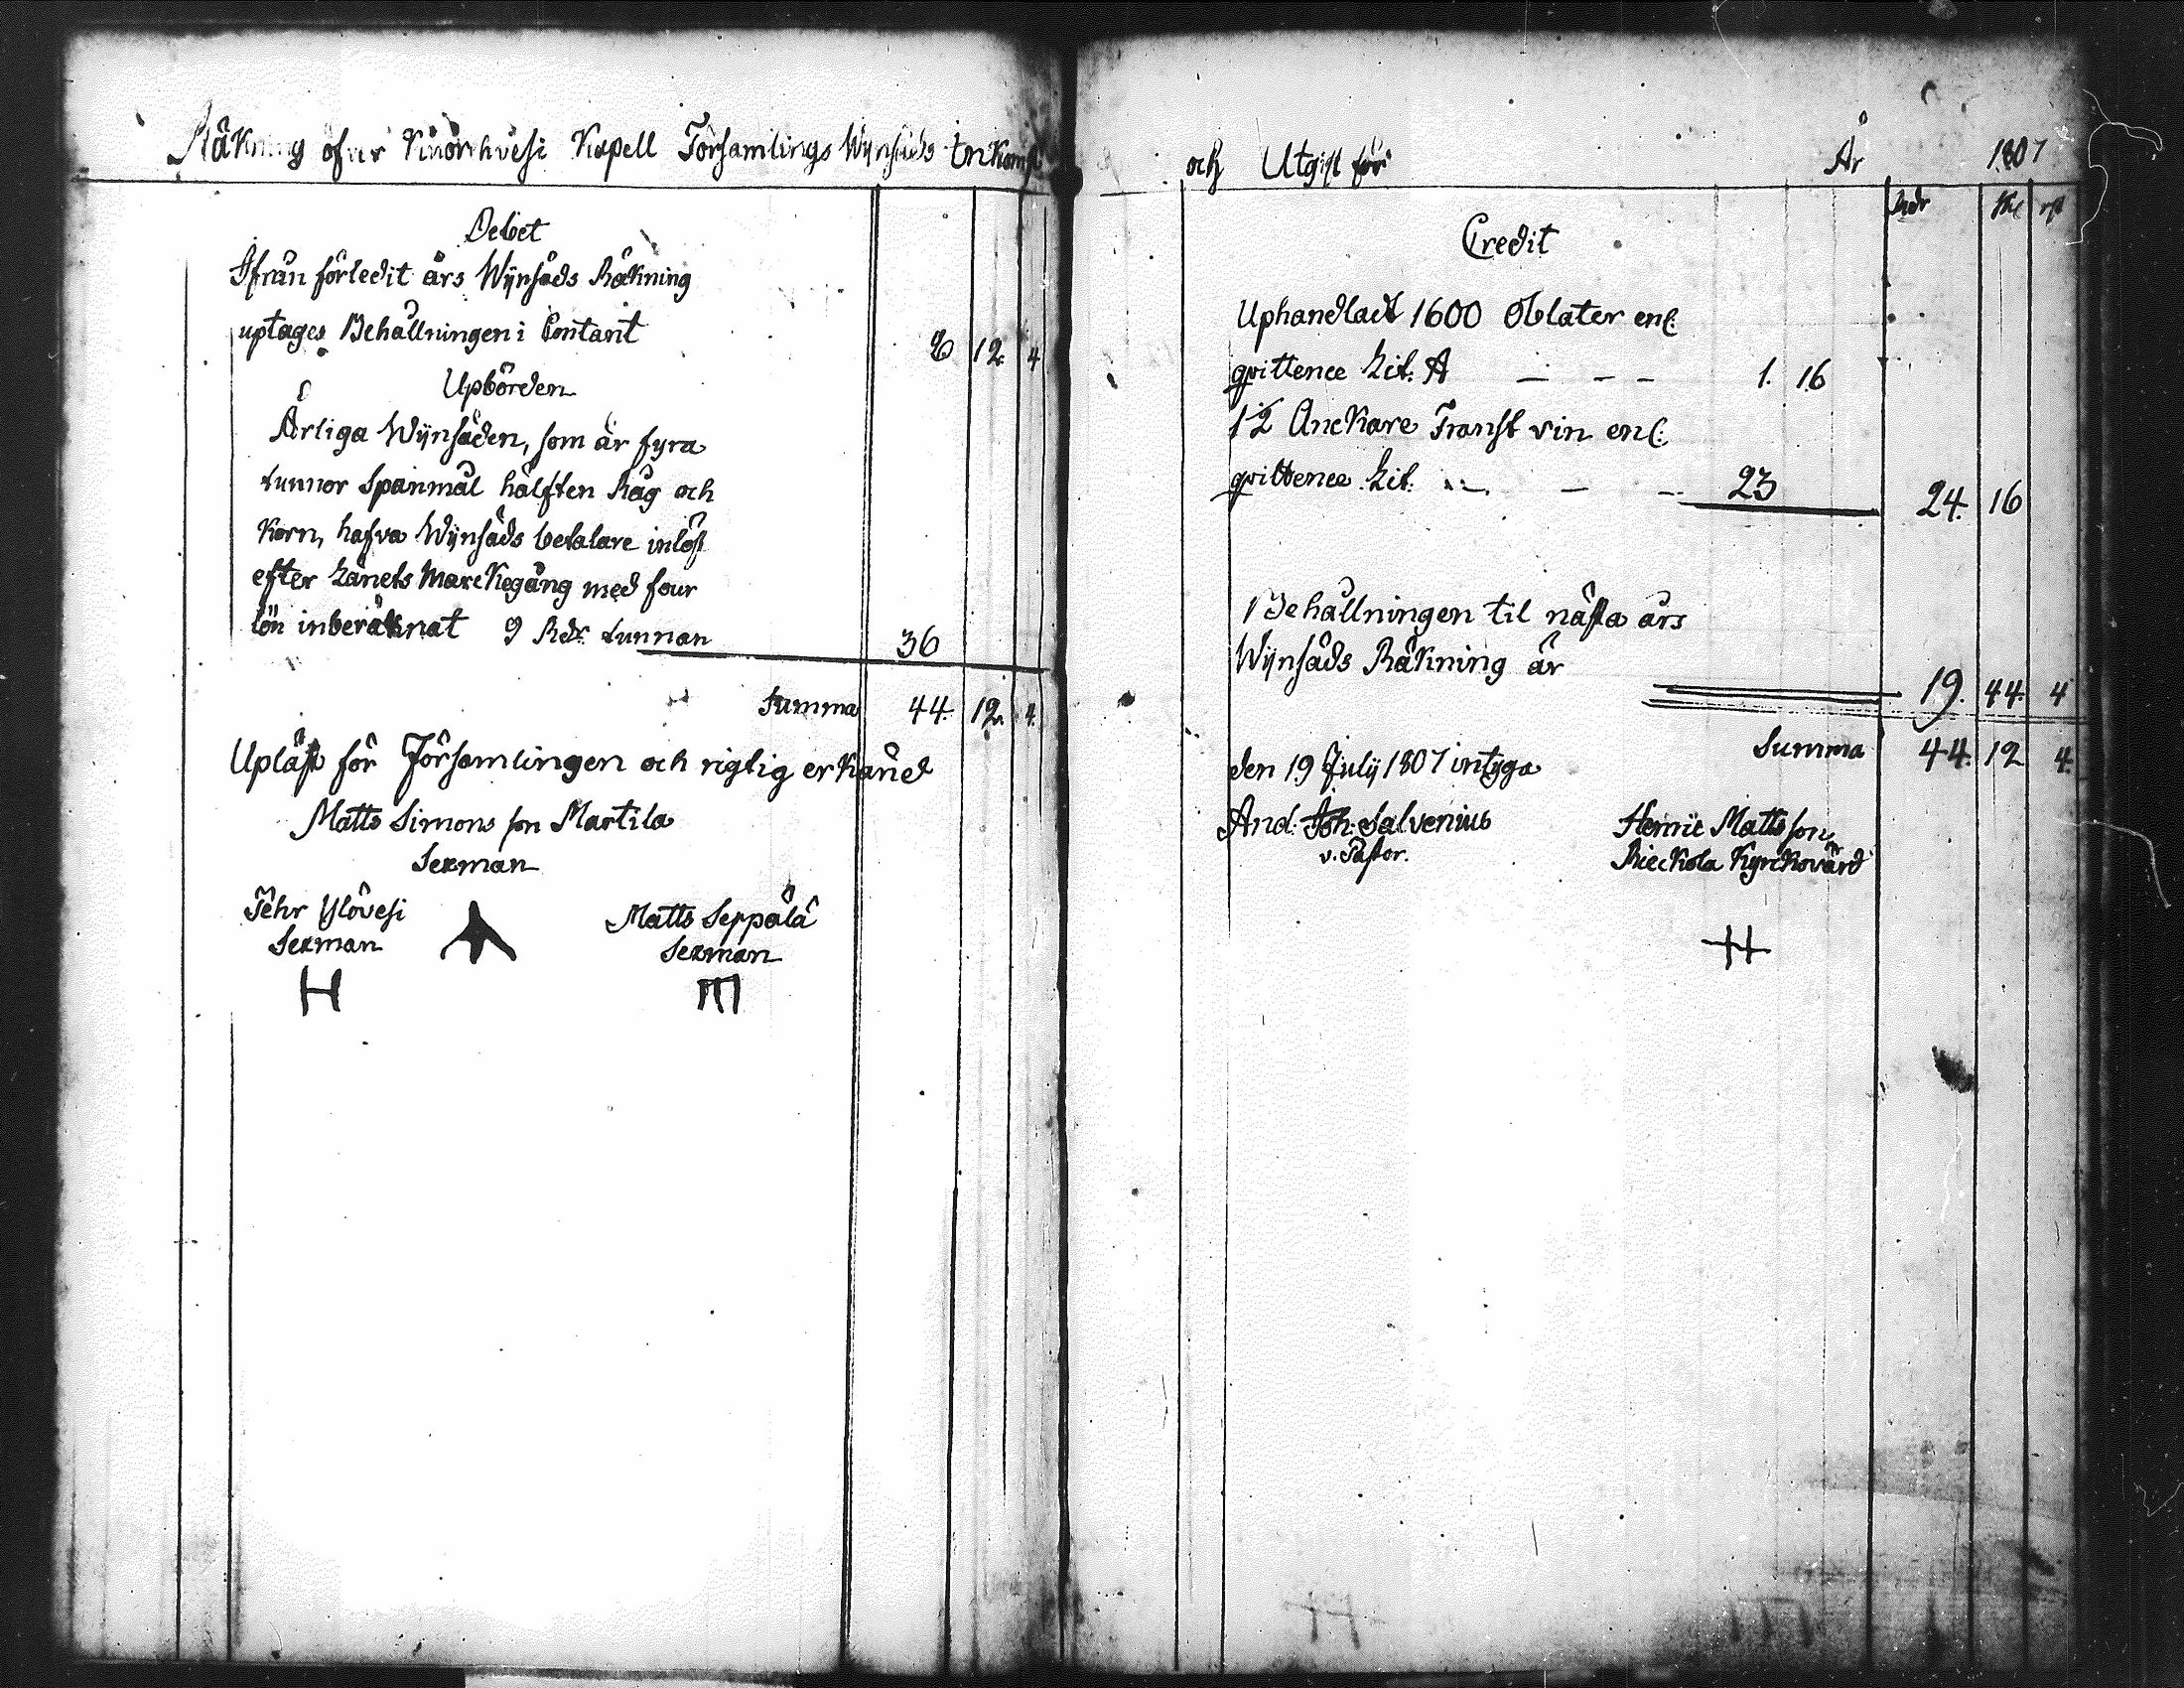 Räkning öfver Kuorehvesi Kapell Församlings Wijnsäds Inkomst
Debet
Ifrån förledit års Wijnsäds Räkning
uptages Behållningen i Contant 8 12. 4
Upbörden
Årliga Wijnsäden, som är fyra
tunnor Spanmål hälften Råg och
Korn, hafva Wijnsäds betalare inlöst
efter Länets Marckegång med four
lön inberäknat 9 Rdr. tunnan 36
Summa 44. 12. 4.
Upläst för Församlingen och rigtig erkänd
Matts Simons son Martila
Sexman
Pehr Ylövesi
Sexman
H
Matts Seppälä
Sexman
och Utgift för År 1807
Rdr sk rst
Credit
Uphandladt 1600 Oblater enl:
qvittence Lit: A — — — 1. 16
1 1/2 Anckare Franst vin enl:
qvittence Lit: — — 23 24. 16
Behållningen til nästa års
Wijnsäds Räkning är 19. 44. 4
Summa 44. 12 4.
den 19 Julij 1807 intyga
And: Joh: Salvenius
v. Pastor.
Henric Matts son
Rieckola Kyrckovärd